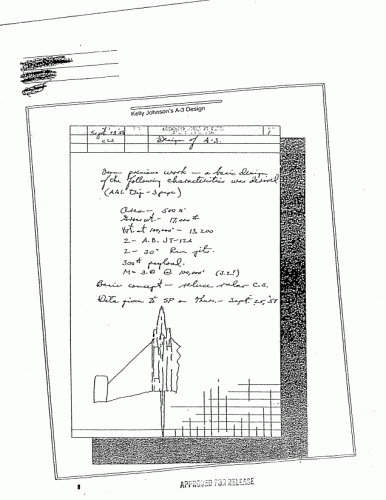 Kelly Johnson's A-3 Design
1
Design of A-3.
previous work - a basic design
of the following characteristics was derived
Area - 500
Gross wt. - 17,000 #
Wt. at 100,000' - 13,200
2 - A.B. JT-12A
2 - 30" Ram jets.
300# payload.
M = 3.0 @ 100,000' (3.2?)
Basic concept - reduce radar C.S.
Data given to SP on Thur. - Sept 25, '58
APPROVED FOR RELEASE